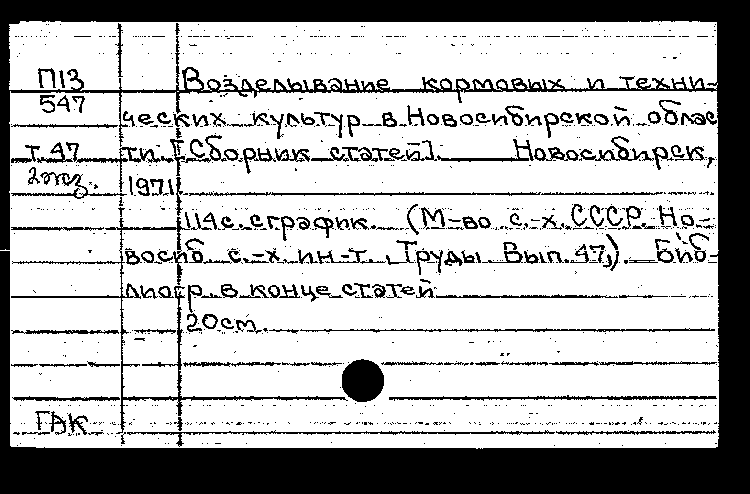 П13 Возделывание кормовых и техни-
547
ческих культур в Новосибирской облас
т.47 ти. [Сборник статей]. Новосибирск,
2экз. 1971.
114с. с график. (М-во с.-х. СССР. Но-
восиб. с.-х. ин-т., Труды. Вып. 47,). Биб-
лиогр. в конце статей
20см.
ГАК